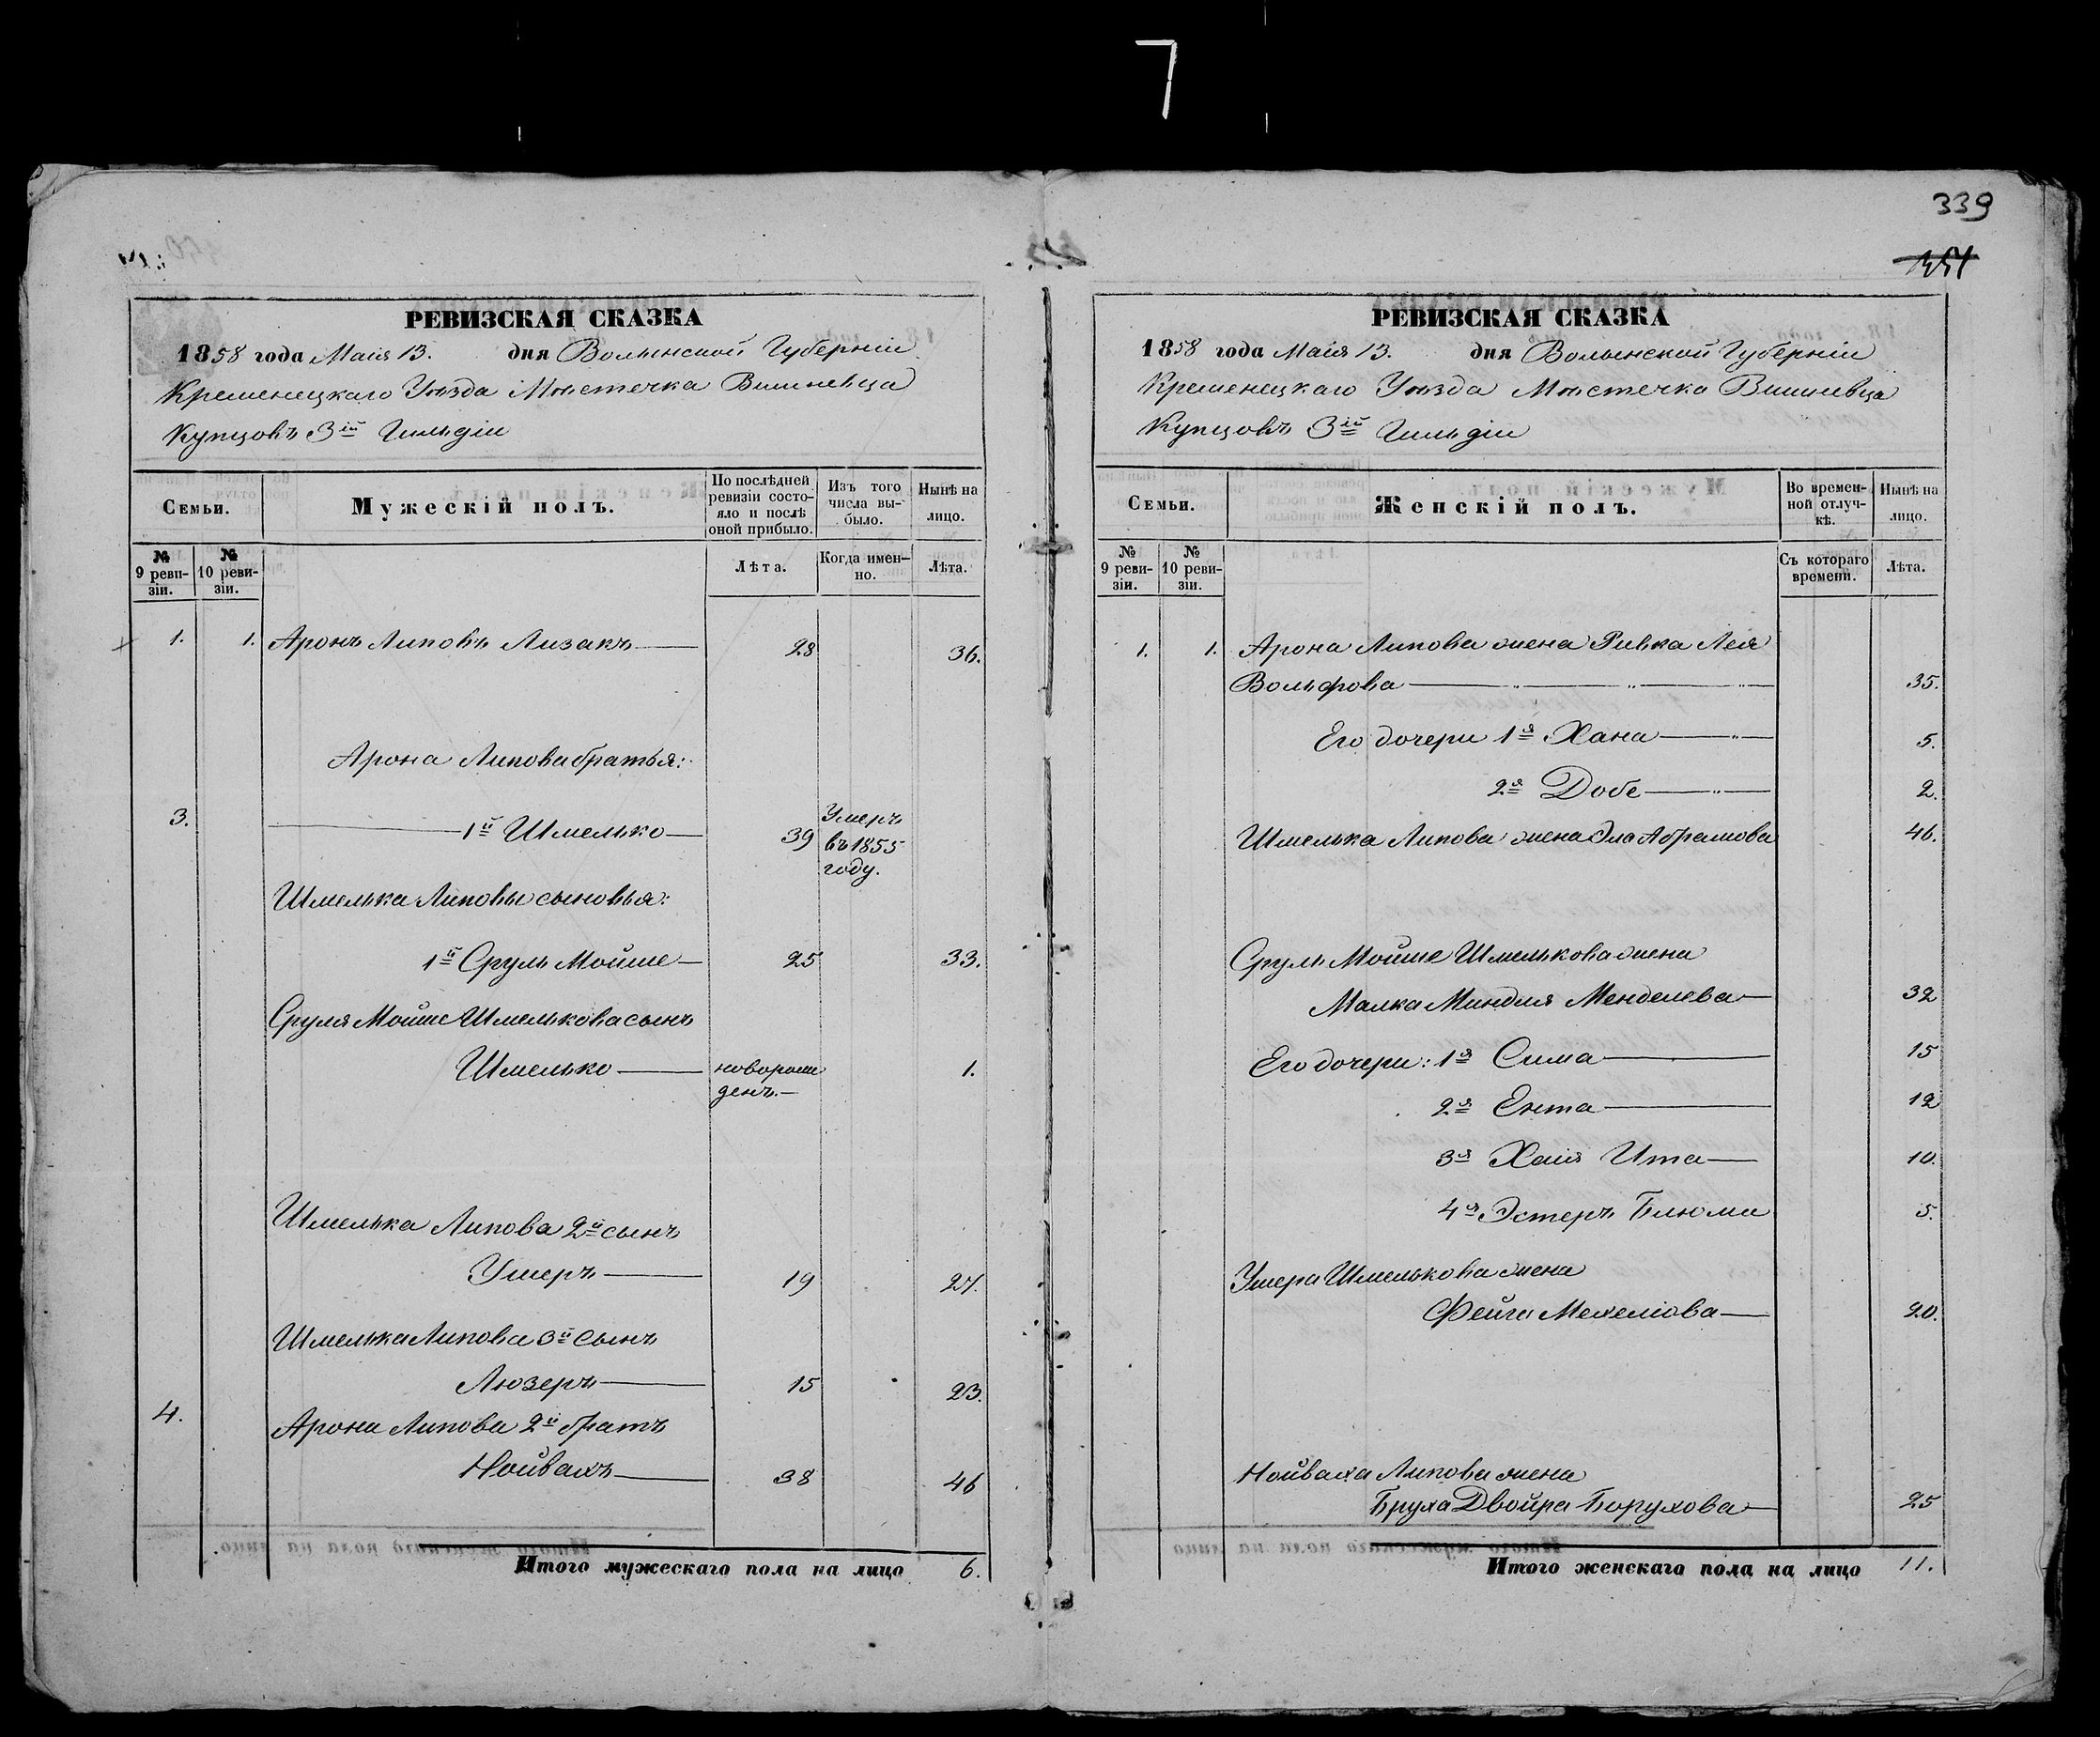 7
339
РЕВИЗСКАЯ СКАЗКА
1858 года Маія 13. дня Волынской Губерніи
Кременецкаго Уѣзда Мѣстечка Вишневца
Купцовъ 3ій Гильдіи
Семьи.
Мужескій полъ.
По послѣдней ревизіи состо-
яло и послѣ оной прибыло.
Изъ того числа вы-
было.
Нынѣ на лицо.
№ 9 реви-
зіи.
№ 10 реви-
зіи.
Лѣта.
Когда имен-
но.
Лѣта.
1. 1. Аронъ Липовъ Лизакъ 28 36.
Арона Липова братья:
3. 1й Шмелько 39 Умеръ
въ 1855
году.
Шмелька Липовы сыновья:
1й Сруль Мойше 25 33.
Сруля Мойше Шмелькова сынъ
Шмелько новорож
денъ. 1.
Шмелька Липова 2й сынъ
Ушеръ 19 27.
Шмелька Липова 3й сынъ
Люзеръ 15 23.
4. Арона Липова 2й братъ
Нойвахъ 38 46
Итого мужескаго пола на лицо 6.
РЕВИЗСКАЯ СКАЗКА
1858 года Маія 13. дня Волынской Губерніи
Кременецкаго Уѣзда Мѣстечка Вишневца
Купцовъ 3ій Гильдіи
Семьи.
Женскій полъ.
Во времен-
ной отлуч-
кѣ.
Нынѣ на лицо.
№ 9 реви-
зіи.
№ 10 реви-
зіи.
Съ котораго времени.
Лѣта.
1. 1. Арона Липова жена Ривка Лея
Вольфова 35.
Его дочери 1я Хана 5.
2я Добе 2.
Шмелька Липова жена Эла Абрамова 46.
Сруль Мойше Шмелькова жена
Малка Миндля Менделева 32
Его дочери: 1я Сима 15
2я Ента 12
3я Хаія Ита 10.
4я Эстеръ Блюма 5.
Ушера Шмелькова жена
Фейга Мехелiова 20.
Нойваха Липова жена
Бруха Двойра Борухова 25
Итого женскаго пола на лицо 11.